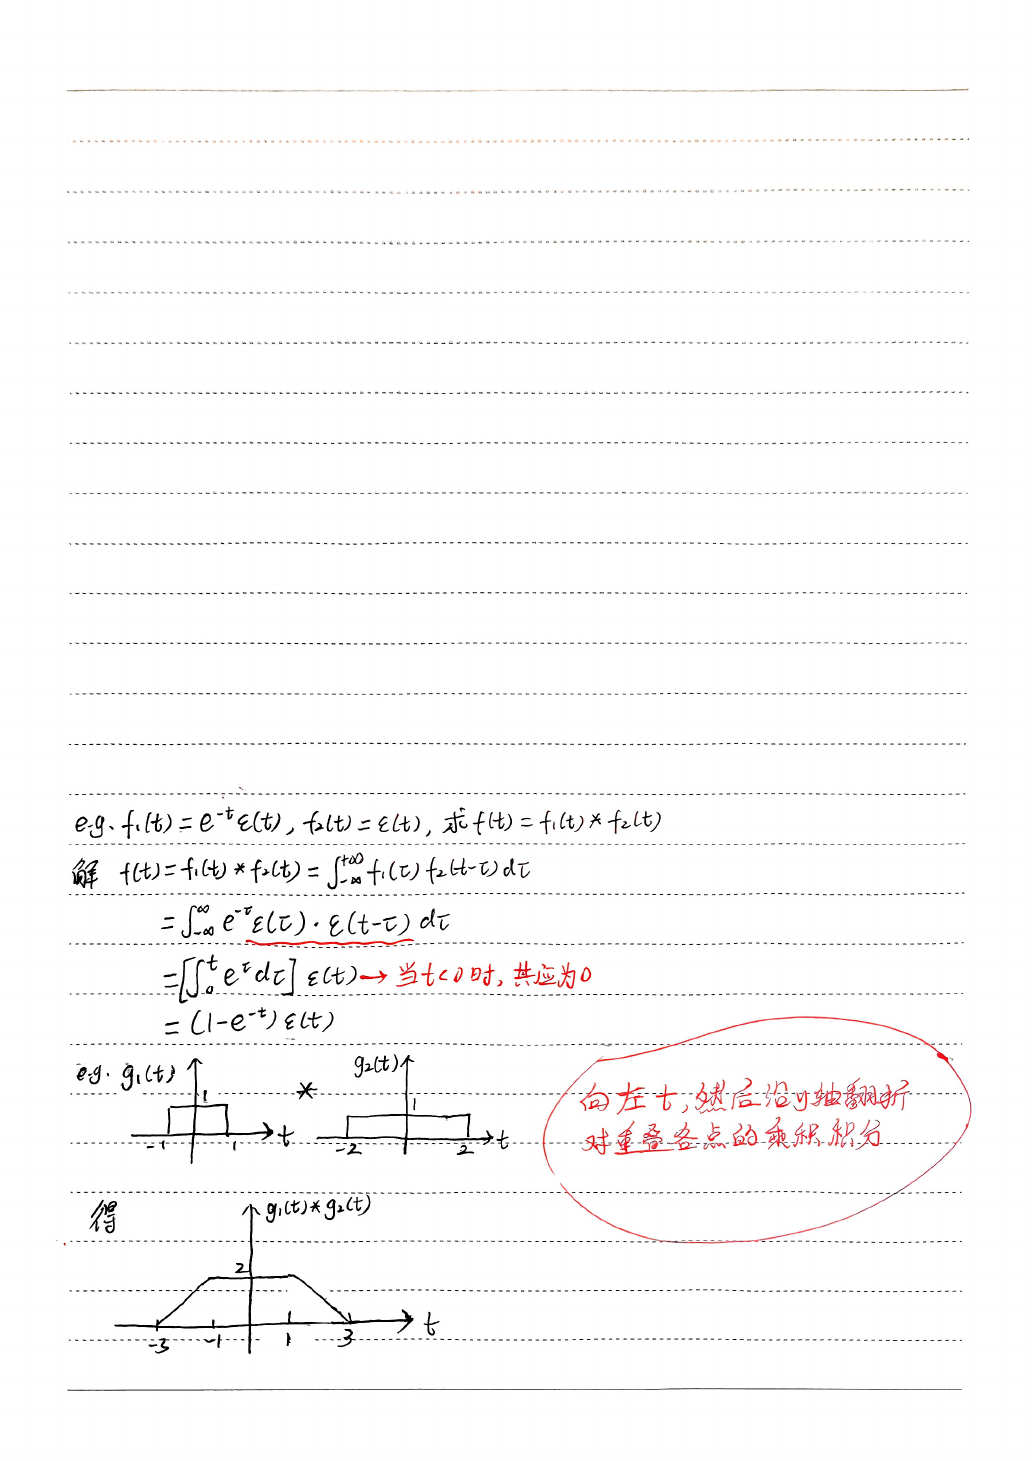 e.g. f₁(t)=e⁻ᵗε(t), f₂(t)=ε(t), 求f(t)=f₁(t)*f₂(t)
解 f(t)=f₁(t)*f₂(t)=∫₋∞⁺∞ f₁(τ)f₂(t-τ)dτ
=∫₋∞^∞ e^-τ ε(τ)·ε(t-τ)dτ
=[∫₀ᵗ e^τ dτ] ε(t)→当t<0时,其应为0
=(1-e⁻ᵗ)ε(t)
e.g. g₁(t) 1 -1 1 t * g₂(t) 1 -2 2 t
向左t,然后沿y轴翻折
对重叠各点的乘积积分
得 g₁(t)*g₂(t)
2
-3 -1 1 3 t